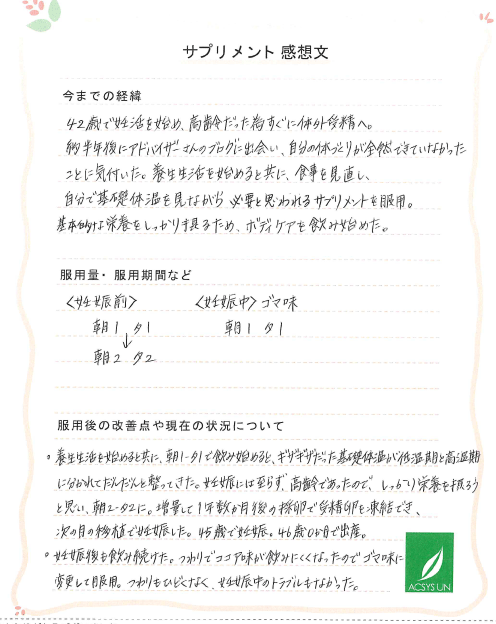 サプリメント 感想文
今までの経緯
42歳で妊活を始め、高齢だった為すぐに体外受精へ。
約半年後にアドバイザーさんのブログに出会い、自分の体づくりが全然できていなかった
ことに気付いた。養生生活を始めると共に、食事を見直し、
自分で基礎体温を見ながら必要と思われるサプリメントを服用。
基本的な栄養をしっかり摂るため、ボディケアを飲み始めた。
服用量・服用期間など
〈妊娠前〉 〈妊娠中〉ゴマ味
朝1 夕1 朝1 夕1
↓
朝2 夕2
服用後の改善点や現在の状況について
。養生生活を始めると共に、朝1・夕1で飲み始めると、ギザギザだった基礎体温が低温期と高温期
に分かれてだんだんと整ってきた。妊娠には至らず、高齢であったので、しっかり栄養を摂ろう
と思い、朝2・夕2に。増量して1年数か月後の採卵で受精卵を凍結でき、
次の月の移植で妊娠した。45歳で妊娠。46歳0か月で出産。
。妊娠後も飲み続けた。つわりでココア味が飲みにくくなったのでゴマ味に
変更して服用。つわりもひどくなく、妊娠中のトラブルもなかった。
ACSYS UN